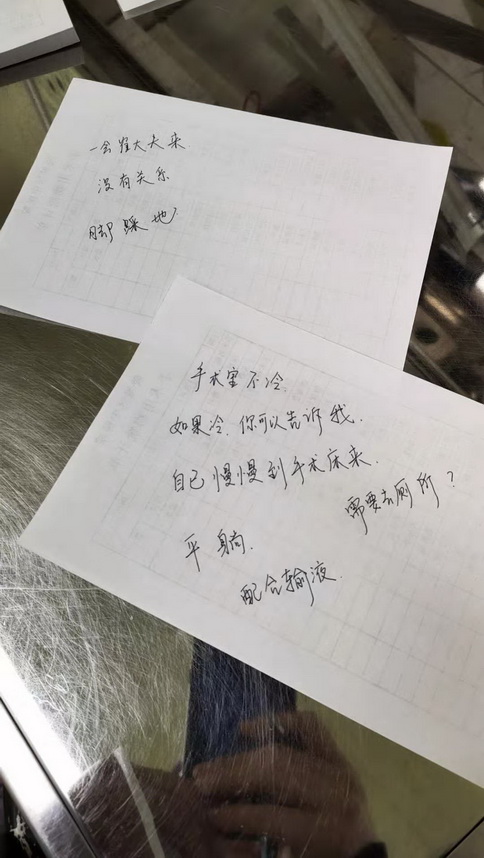 一会罐大夫来
没有关系
脚踩地
手术室不冷.
如果冷.你可以告诉我.
自己慢慢到手术床来.
需要去厕所?
平躺.
配合输液.